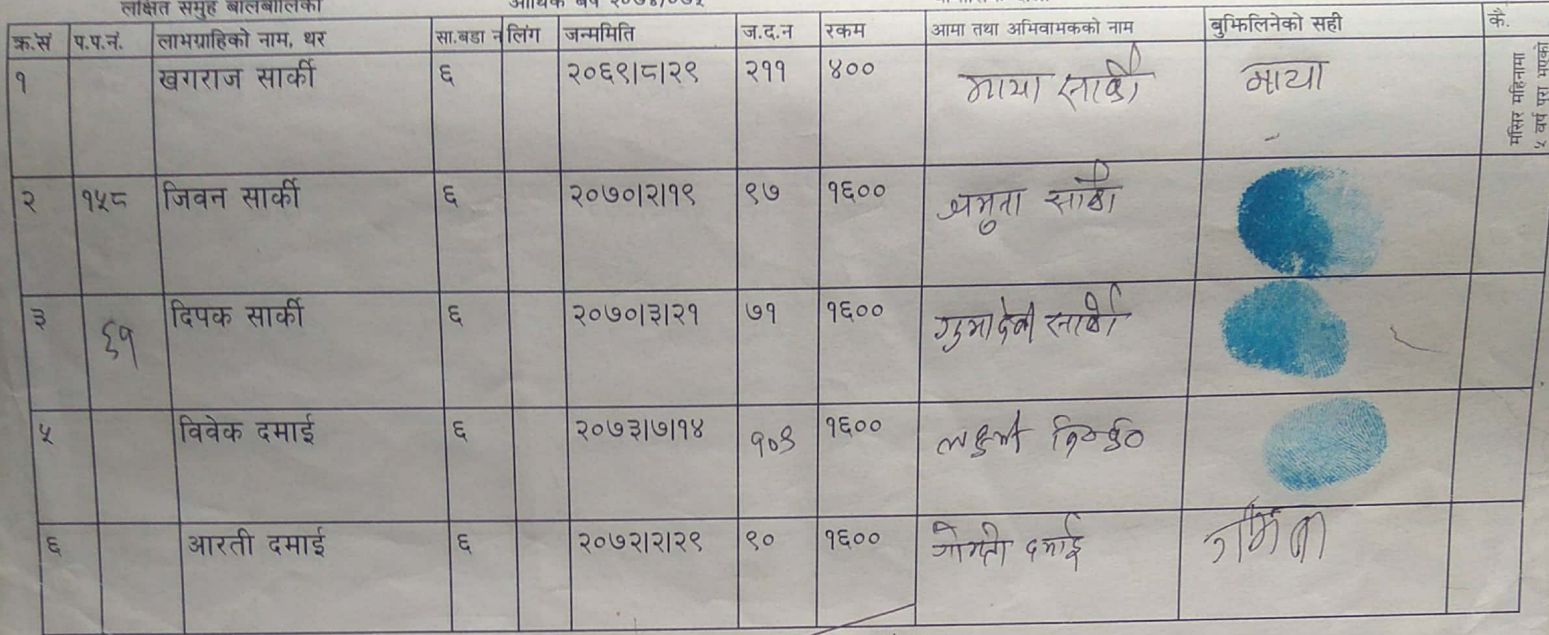 लक्षित समुह बालबालिका आर्थिक बर्ष २०७४/०७५
क्र.सं प.प.नं. लाभग्राहिको नाम, थर सा.बडा न लिंग जन्ममिति ज.द.न रकम आमा तथा अभिवाभकको नाम बुझिलिनेको सही कै.
१ खगराज सार्की ६ २०६९।८।२९ २११ ४०० माया सार्की माया मंसिर महिनामा ५ वर्ष पुरा भएको
२ १५८ जिवन सार्की ६ २०७०।२।१९ ९७ १६०० अमृता सार्की
३ ६१ दिपक सार्की ६ २०७०।३।२१ ७१ १६०० सार्की
५ विवेक दमाई ६ २०७३।७।१४ १०९ १६०० लक्ष्मी
६ आरती दमाई ६ २०७२।२।२९ ९० १६०० गोमती दमाई